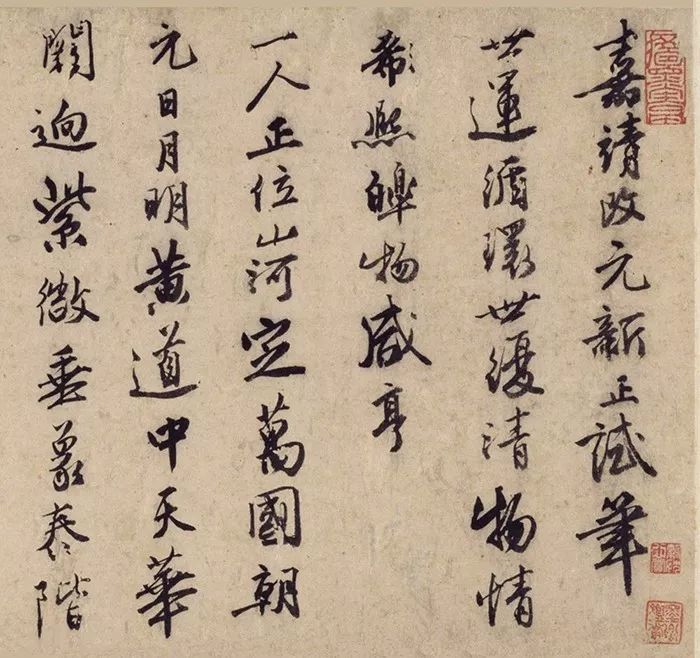 嘉靖改元新正試筆
世運循環世復清物情
熙皞物咸亨
一人正位山河定萬國朝
元日月明黃道中天華
闕迥紫微垂象泰階